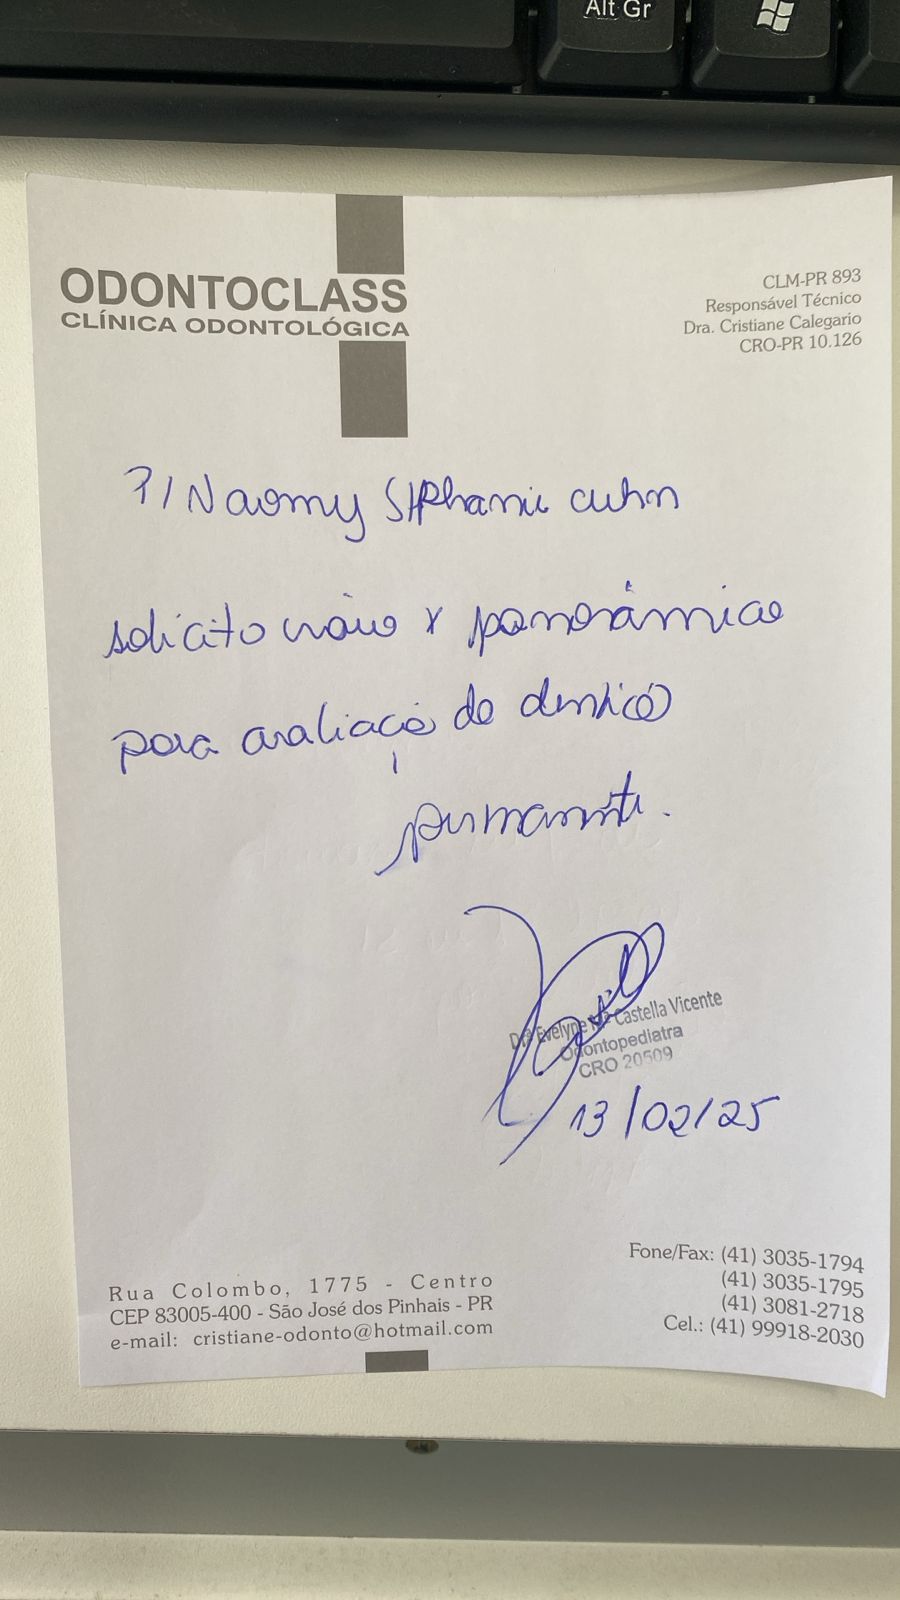 Alt Gr
ODONTOCLASS
CLÍNICA ODONTOLÓGICA
CLM-PR 893
Responsável Técnico
Dra. Cristiane Calegario
CRO-PR 10.126
P/ Naomy Stphanie cuhn
solicito raio x panorâmica
para avaliação da dentição
permanente.
Drª Evelyne Castella Vicente
Odontopediatra
CRO 20509
13/02/25
Rua Colombo, 1775 - Centro
CEP 83005-400 - São José dos Pinhais - PR
e-mail: cristiane-odonto@hotmail.com
Fone/Fax: (41) 3035-1794
(41) 3035-1795
(41) 3081-2718
Cel.: (41) 99918-2030